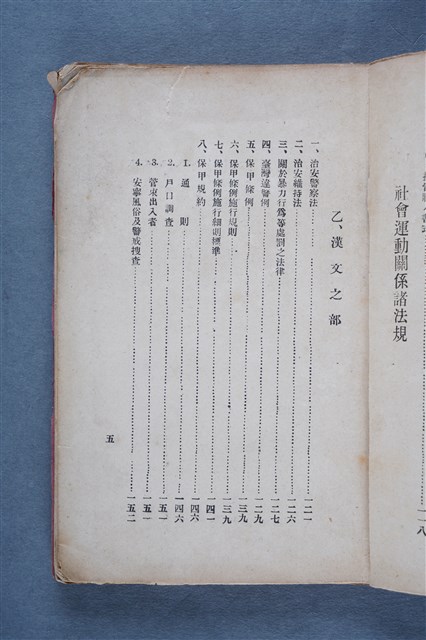 社會運動關係諸法規
一八
乙、漢文之部
一、治安警察法……一二一
二、治安維持法……一二六
三、關於暴力行爲等處罰之法律……一二七
四、臺灣違警例……一二九
五、保甲條例……一三九
六、保甲條例施行規則……一三九
七、保甲條例施行細則標準……一四一
八、保甲規約……一四六
1. 通則……一四六
2. 戶口調查……一五一
3. 管束出入者……一五一
4. 安寧風俗及警戒搜查……一五二
五